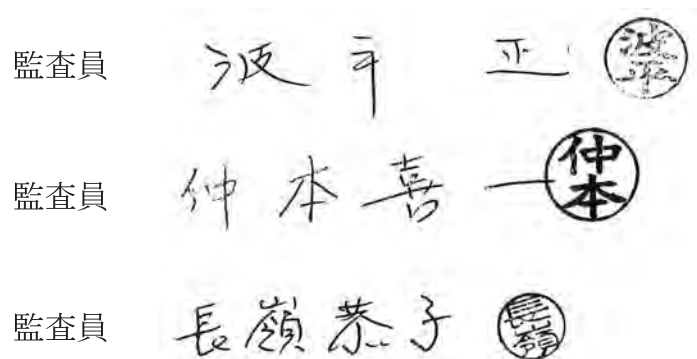 監査員 波平 正 波平
監査員 仲本喜一 仲本
監査員 長嶺恭子 長嶺